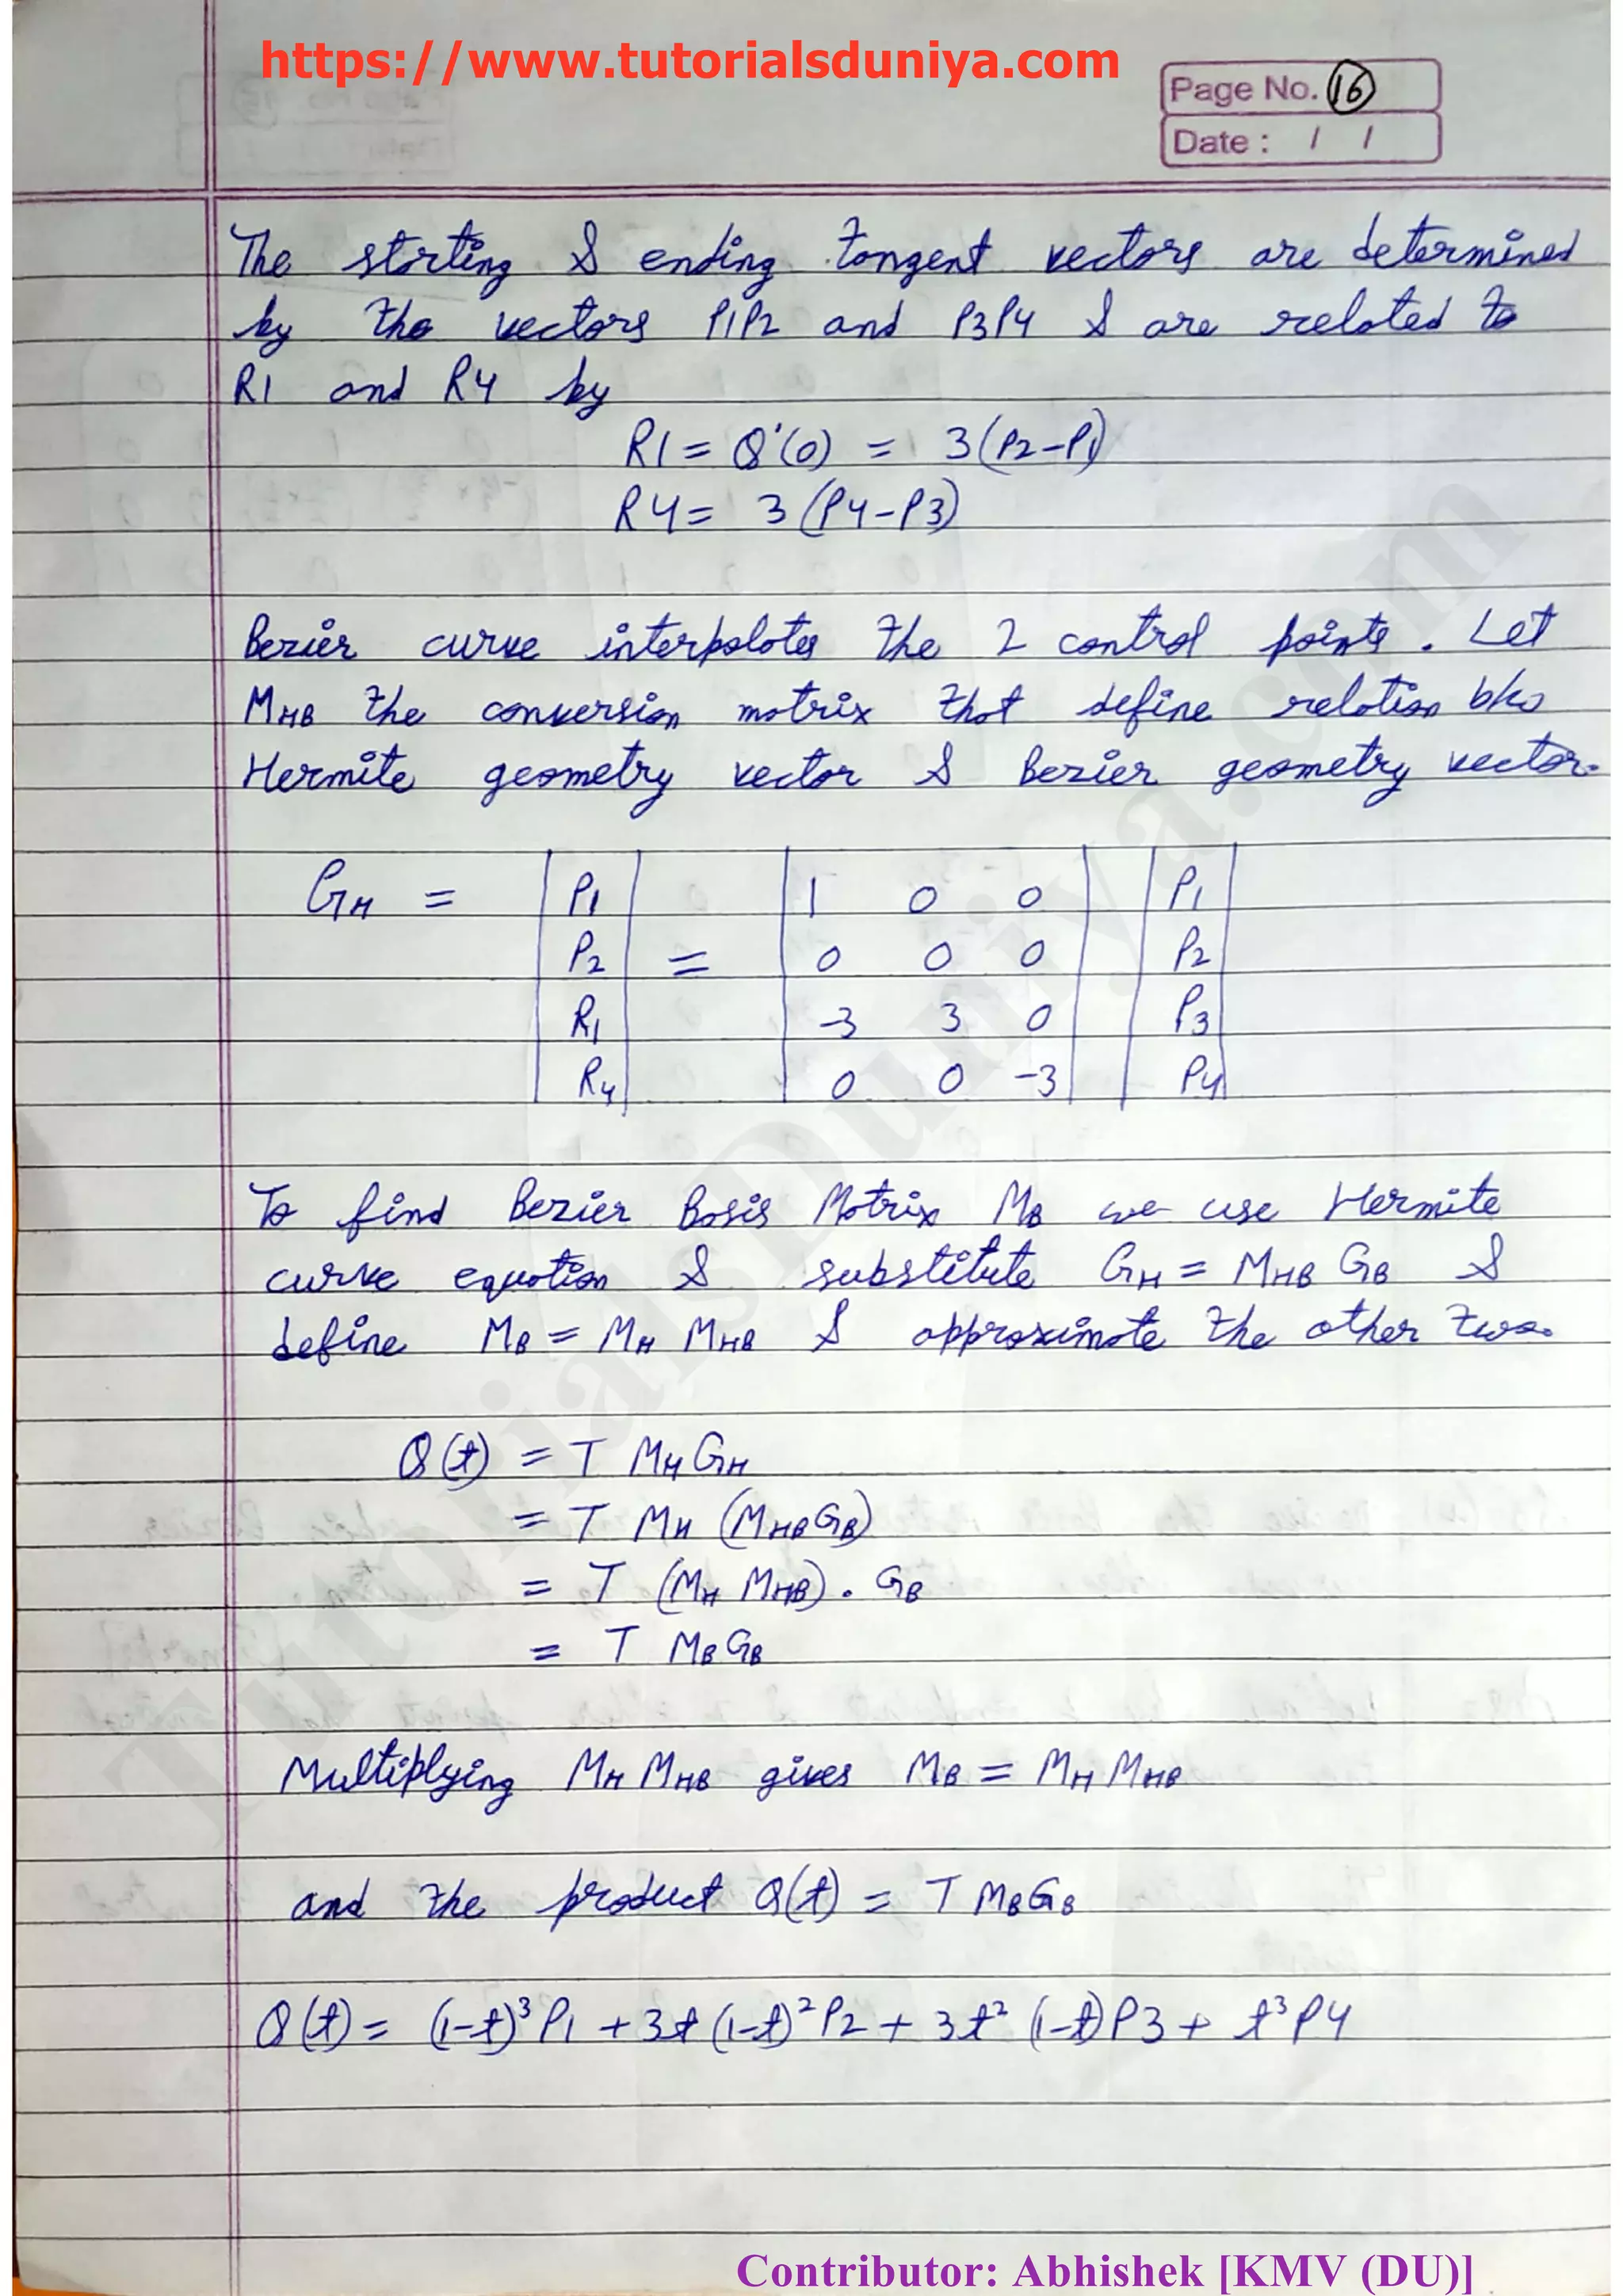 https://www.tutorialsduniya.com
Page No. 16
Date : / /
The starting & ending tangent vectors are determined
by the vectors P1P2 and P3P4 & are related to
R1 and R4 by
R1 = Q'(0) = 3(P2-P1)
R4 = 3(P4-P3)
Bezier curve interpolates the 2 control points. Let
MHB the conversion matrix that define relation b/w
Hermite geometry vector & Bezier geometry vector.
GH = | P1 | = | 1 0 0 | | P1 |
| P2 | | 0 0 0 | | P2 |
| R1 | | -3 3 0 | | P3 |
| R4 | | 0 0 -3 | | P4 |
To find Bezier Basis Matrix MB we use Hermite
curve equation & substitute GH = MHB GB &
define MB = MH MHB & approximate the other two.
Q(t) = T MH GH
= T MH (MHB GB)
= T (MH MHB) . GB
= T MB GB
Multiplying MH MHB gives MB = MH MHB
and the product Q(t) = T MB GB
Q(t) = (1-t)³ P1 + 3t (1-t)² P2 + 3t² (1-t) P3 + t³ P4
TutorialsDuniya.com
Contributor: Abhishek [KMV (DU)]